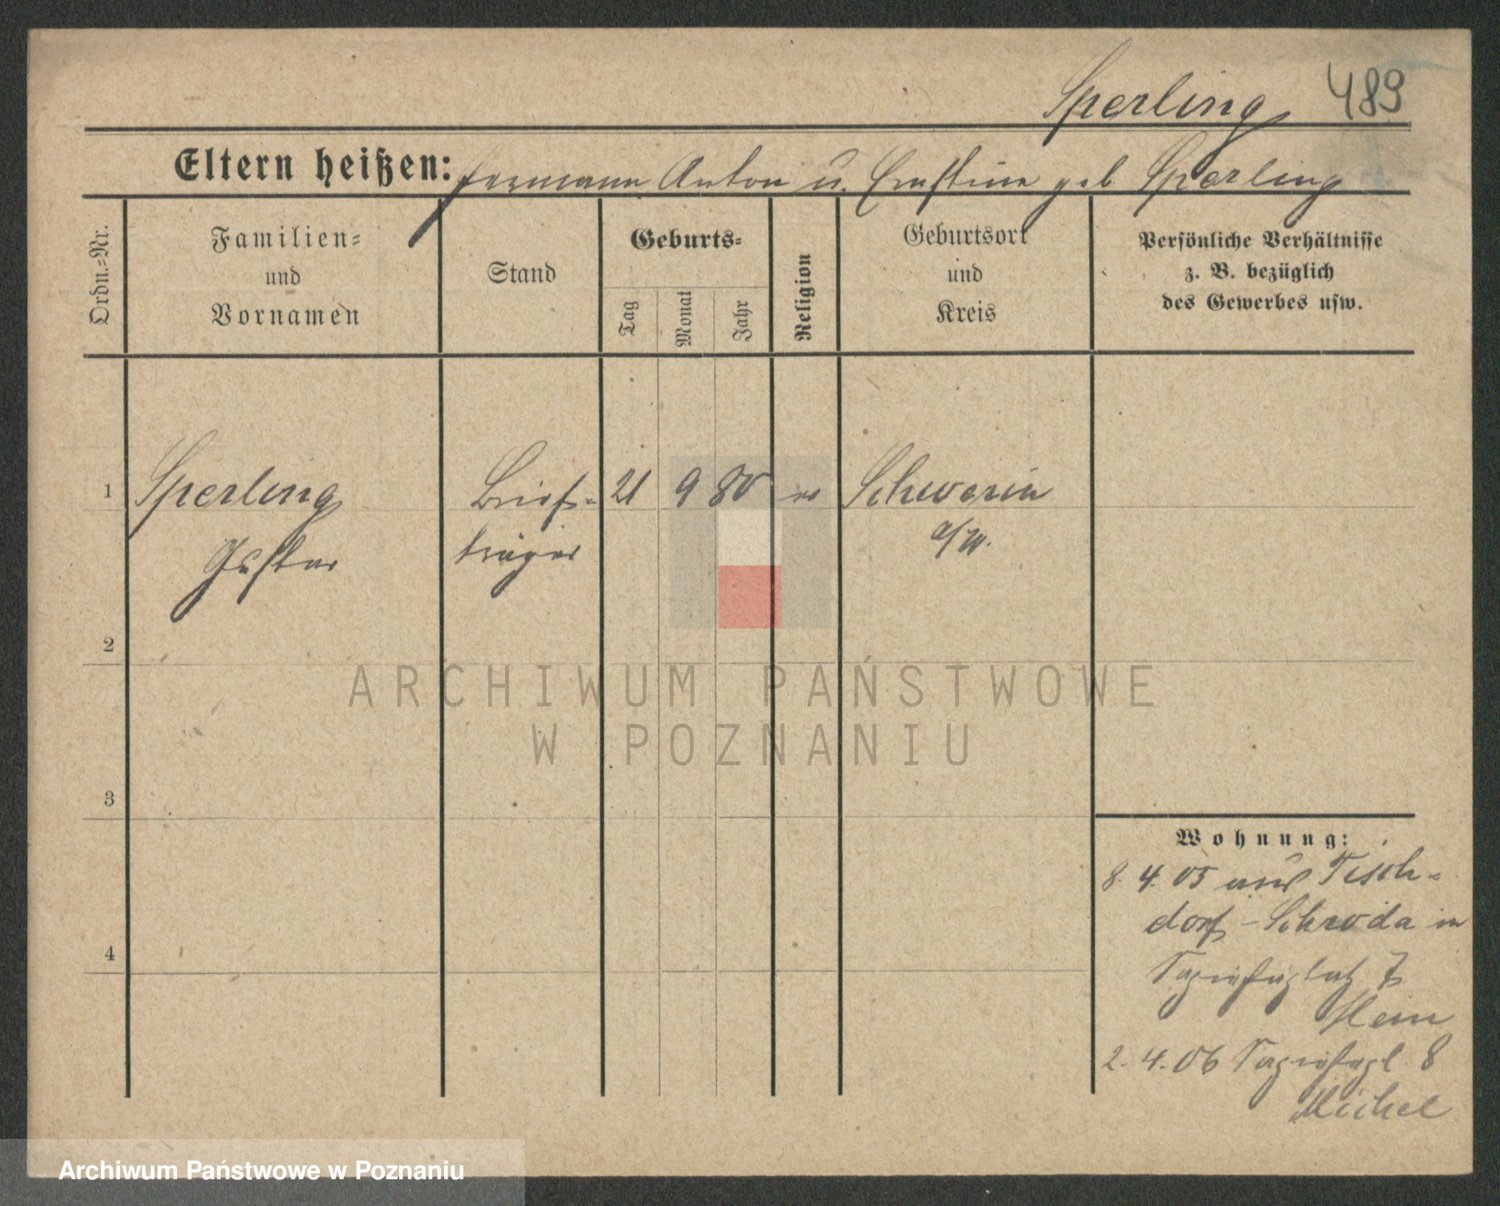 Sperling 489
Eltern heißen: Hermann Anton u. Ernstine geb Sperling
Ordn.-Nr.
Familien-
und
Vornamen
Stand
Geburts-
Tag
Monat
Jahr
Religion
Geburtsort
und
Kreis
Persönliche Verhältnisse
z. B. bezüglich
des Gewerbes usw.
1 Sperling Brief- 21 9 80 ev Schwerin
Gustav träger a/W.
2
3
4
Wohnung:
8. 4. 05 aus Tisch-
dorf - Schroda in
7
2. 4. 06 8
Michel
ARCHIWUM PAŃSTWOWE
W POZNANIU
Archiwum Państwowe w Poznaniu